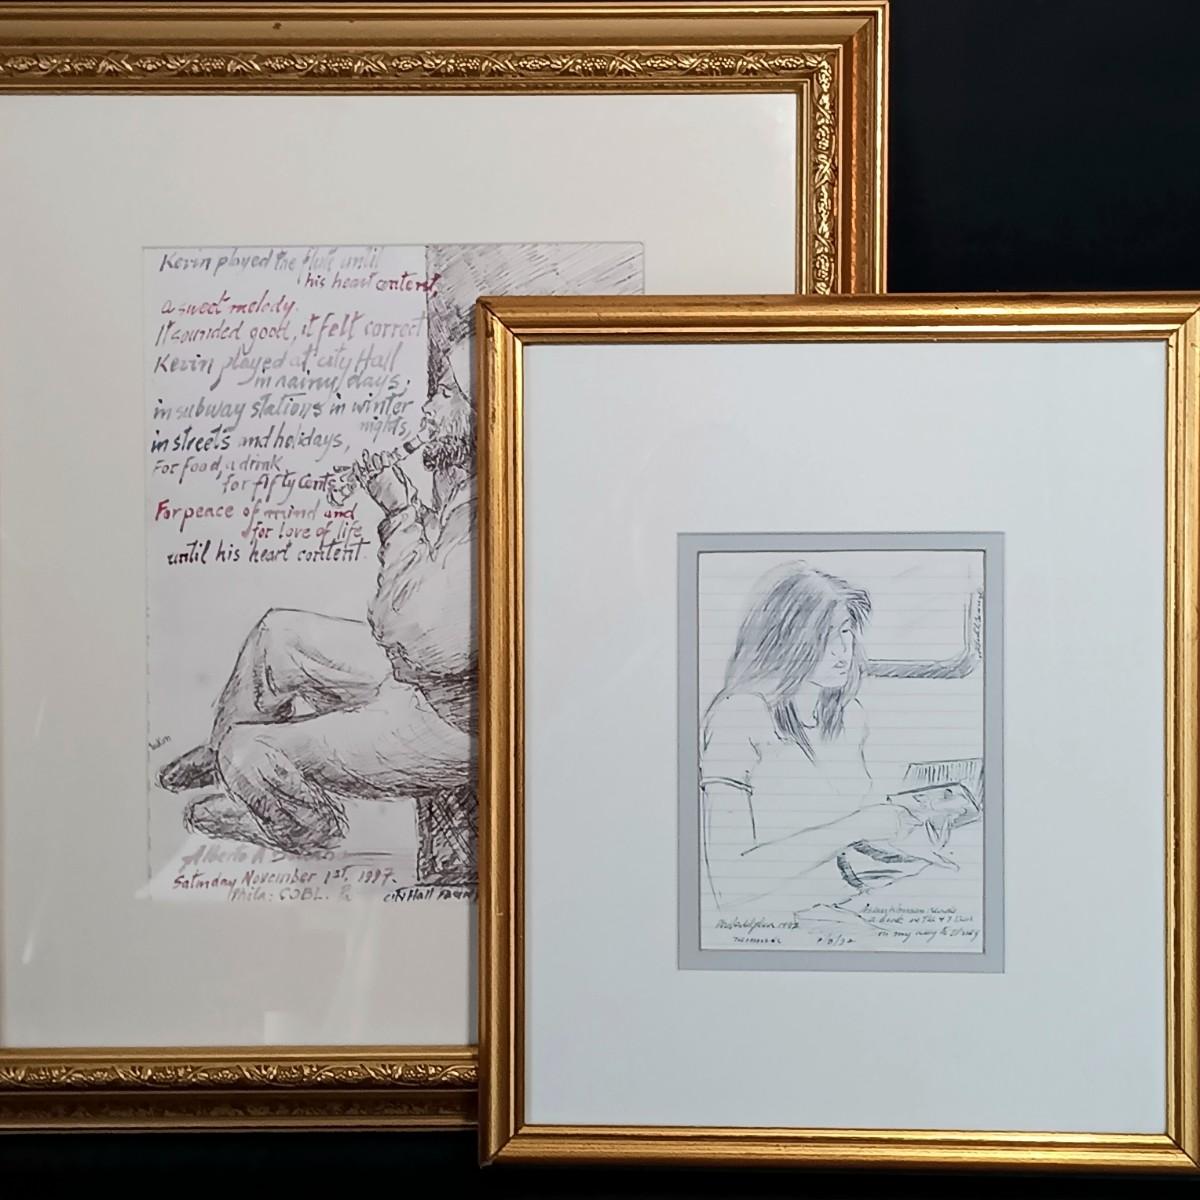 Kevin played the flute until
his heart content,
a sweet melody.
It sounded good, it felt correct
Kevin played at city Hall
in rainy days,
in subway stations in winter
nights,
in streets and holidays,
For food, a drink
for fifty cents.
For peace of mind and
for love of life
until his heart content.
Alberto A
Saturday November 1st, 1997.
Phila: COBL. Pa
City Hall
Philadelphia 1992
Woman Reads
a book on the
on my way to